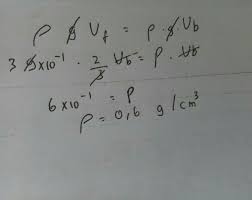 ρ g V_f = ρ · g · V_b
3 9×10⁻¹ · 2/3 V_b = ρ · V_b
6×10⁻¹ = ρ
ρ = 0,6 g/cm³